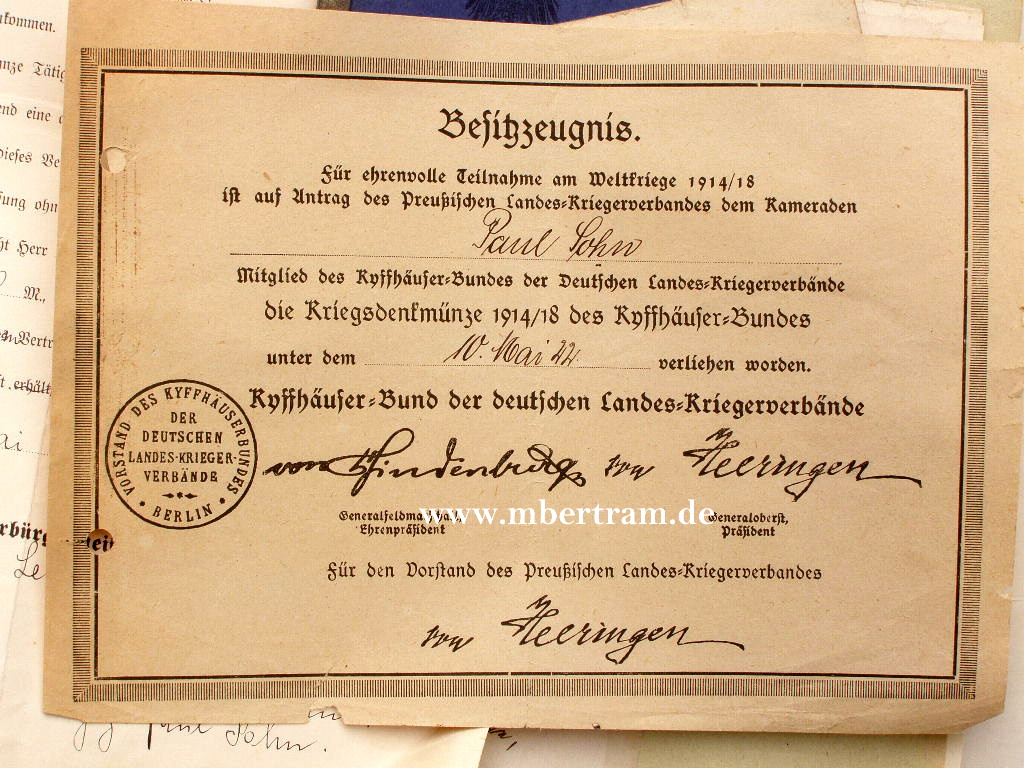 kommen.
Besitzeugnis.
Für ehrenvolle Teilnahme am Weltkriege 1914/18
ist auf Antrag des Preußischen Landes-Kriegerverbandes dem Kameraden
Paul Sohn
Mitglied des Kyffhäuser-Bundes der Deutschen Landes-Kriegerverbände
die Kriegsdenkmünze 1914/18 des Kyffhäuser-Bundes
unter dem 10. Mai 22 verliehen worden.
Kyffhäuser-Bund der deutschen Landes-Kriegerverbände
VORSTAND DES KYFFHÄUSERBUNDES
DER
DEUTSCHEN
LANDES-KRIEGER-
VERBÄNDE
BERLIN
von Hindenburg von Heeringen
Generalfeldmarschall, Generaloberst,
Ehrenpräsident Präsident
www.mbertram.de
Für den Vorstand des Preußischen Landes-Kriegerverbandes
von Heeringen
eine
dieses
ohn
Herr
M.,
erhält
Paul Sohn.